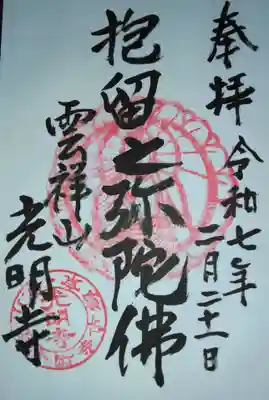 奉拝
令和七年
二月二十一日
抱留之弥陀佛
雲祥山
光明寺